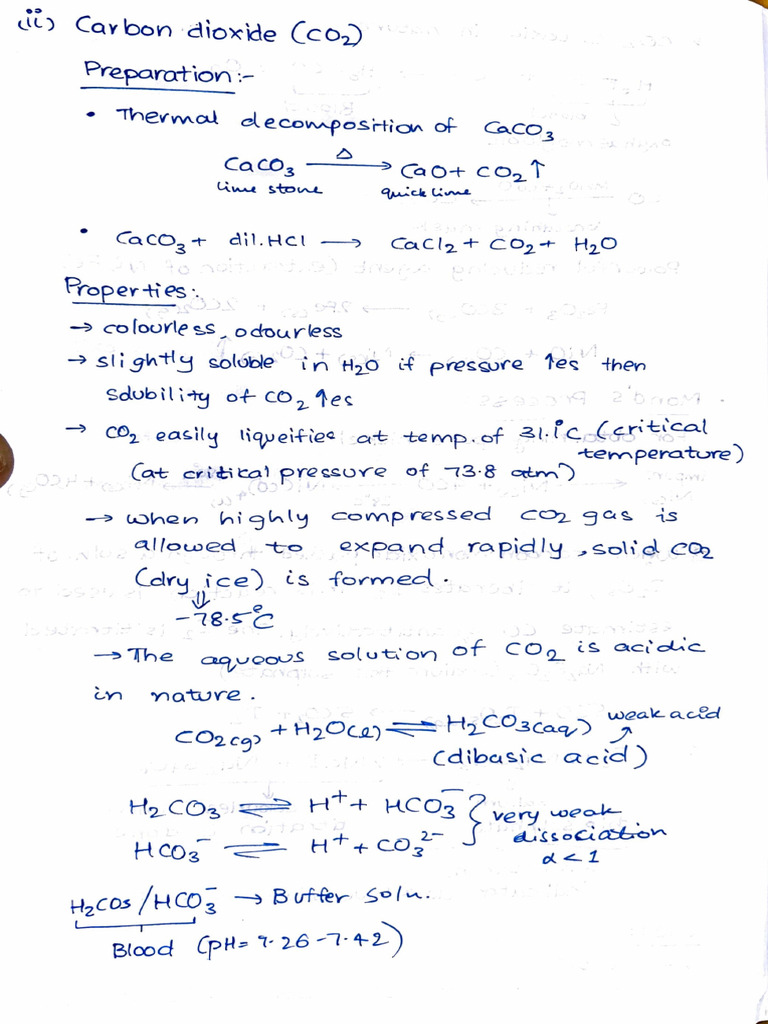 (ii) Carbon dioxide (CO2)
Preparation:-
• Thermal decomposition of CaCO3
CaCO3 —Δ→ CaO + CO2↑
lime stone quick lime
• CaCO3 + dil.HCl → CaCl2 + CO2 + H2O
Properties:
→ colourless, odourless
→ slightly soluble in H2O if pressure ↑es then
solubility of CO2 ↑es
→ CO2 easily liqueifies at temp. of 31.1°C (critical
temperature)
(at critical pressure of 73.8 atm)
→ when highly compressed CO2 gas is
allowed to expand rapidly, solid CO2
(dry ice) is formed.
⇓
-78.5°C
→ The aqueous solution of CO2 is acidic
in nature.
CO2(g) + H2O(l) ⇌ H2CO3(aq) weak acid
(dibasic acid)
H2CO3 ⇌ H+ + HCO3- } very weak
HCO3- ⇌ H+ + CO3 2- dissociation
α < 1
H2CO3/HCO3- → Buffer soln.
Blood (pH = 7.26-7.42)